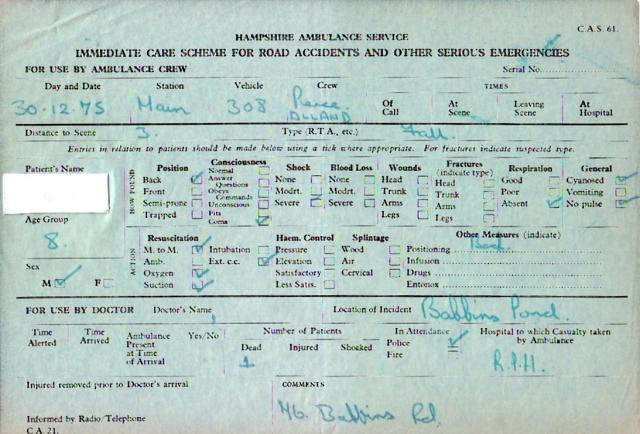 C.A.S. 61.
HAMPSHIRE AMBULANCE SERVICE
IMMEDIATE CARE SCHEME FOR ROAD ACCIDENTS AND OTHER SERIOUS EMERGENCIES
FOR USE BY AMBULANCE CREW Serial No.
Day and Date Station Vehicle Crew TIMES
30-12-75 Main 308 Of Call At Scene Leaving Scene At Hospital
Distance to Scene 3. Type (R.T.A., etc.) Fall.
Entries in relation to patients should be made below using a tick where appropriate. For fractures indicate suspected type.
Patient's Name
HOW FOUND
Position Consciousness Shock Blood Loss Wounds Fractures (indicate type) Respiration General
Back Normal None None Head Head Good Cyanosed
Front Answer Questions Modrt. Modrt. Trunk Trunk Poor Vomiting
Semi-prone Obeys Commands Severe Severe Arms Arms Absent No pulse
Trapped Unconscious Legs Legs
Fits
Coma
Age Group
8.
Sex
M F
ACTION
Resuscitation Haem. Control Splintage Other Measures (indicate)
M. to M. Intubation Pressure Wood Positioning Back.
Amb. Ext. c.c. Elevation Air Infusion
Oxygen Satisfactory Cervical Drugs
Suction Less Satis. Entonox
FOR USE BY DOCTOR Doctor's Name Location of Incident Babbins Pond.
Time Alerted Time Arrived Ambulance Present at Time of Arrival Yes/No Number of Patients In Attendance Hospital to which Casualty taken by Ambulance
Dead Injured Shocked Police
Fire
1 R.S.H.
Injured removed prior to Doctor's arrival COMMENTS
46. Babbins Rd.
Informed by Radio/Telephone
C.A. 21.